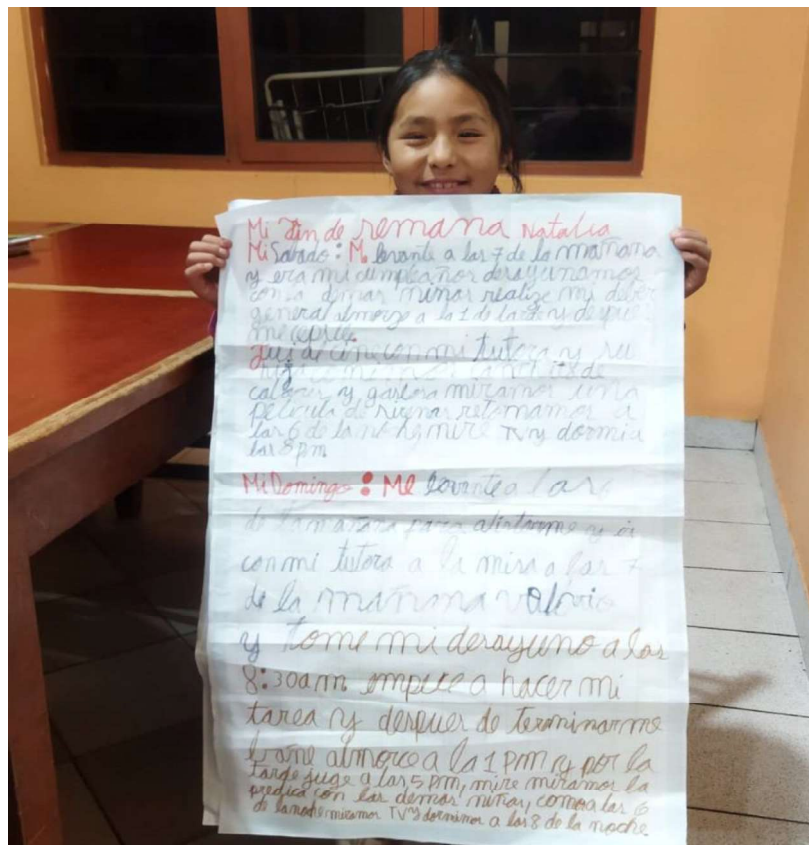 Mi fin de semana Natalia
Mi Sabado: Me levante a las 7 de la mañana
y era mi cumpleaños desayunamos
con a demas niñas realize mi deber
general almorze a la 1 de la y despues
me cepille.
Fui al cine con mi tutora y su
hija comimos canchitas de
calores y gaseosa miramos una
pelicula de sirenas retornamos a
las 6 de la noche mire TV y dormi a
las 8 pm
Mi Domingo: Me levante a las
de la mañana para alistarme y ir
con mi tutora a la misa a las 7
de la mañana
y tome mi desayuno a las
8:30am empece a hacer mi
tarea y despues de terminar me
bañe almorce a la 1 pm y por la
tarde juge a las 5 pm, mire miramos la
predica con las demas niñas, como a las 6
de la noche miramos TV y dormimos a las 8 de la noche